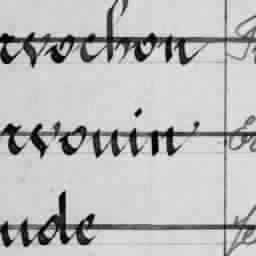 rvochon
rvouin
ude